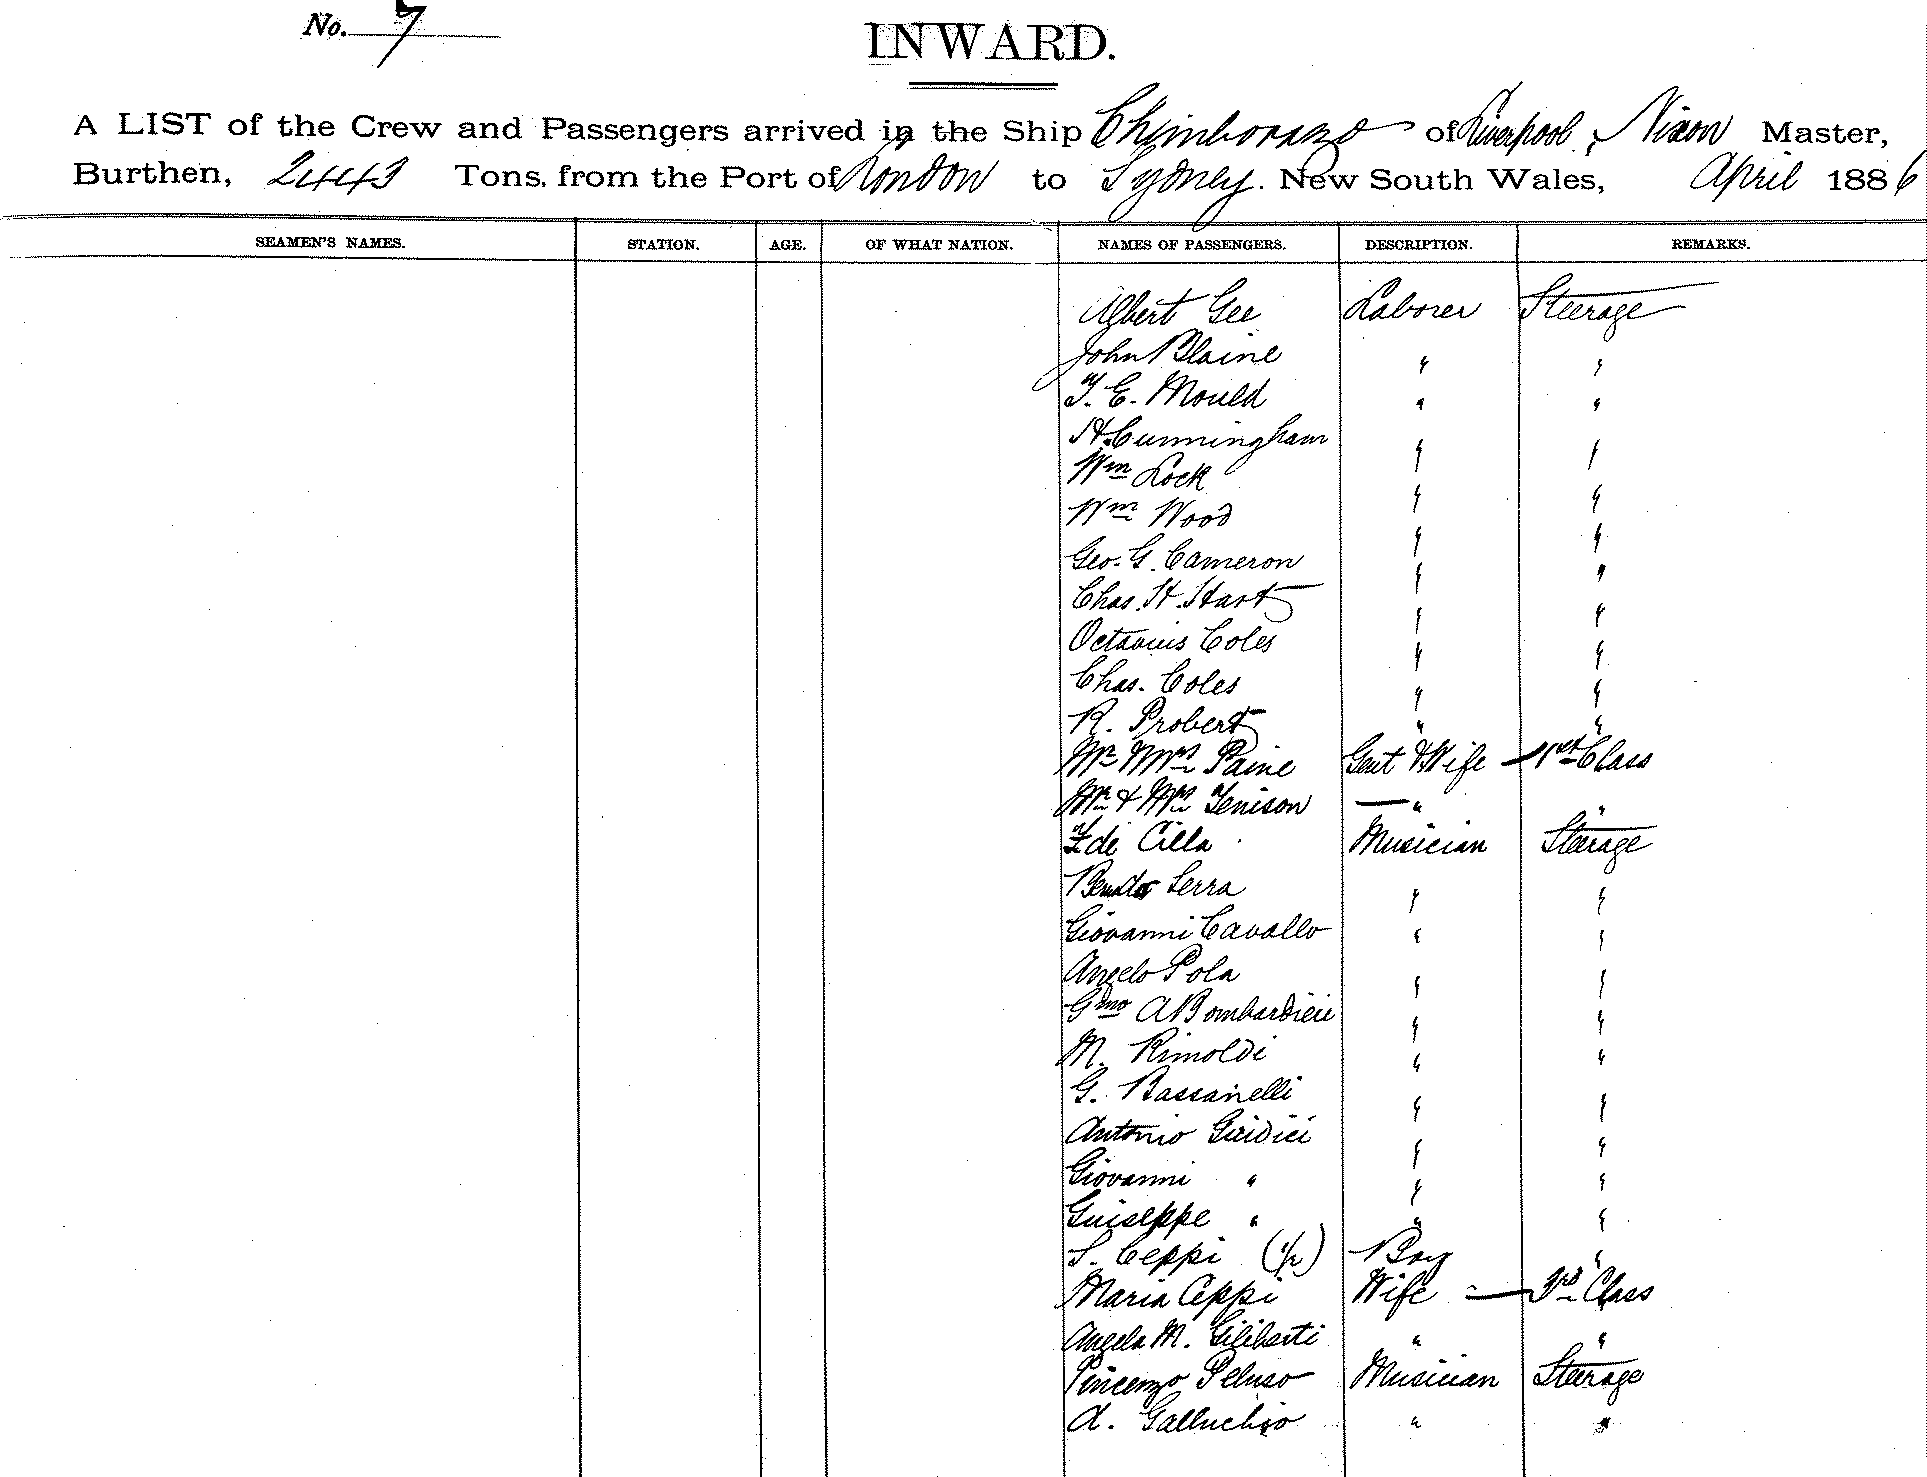 No. 7
INWARD.
A LIST of the Crew and Passengers arrived in the Ship Chimborazo of Liverpool, Nixon Master,
Burthen, 2443 Tons. from the Port of London to Sydney. New South Wales, April 1886
SEAMEN'S NAMES. STATION. AGE. OF WHAT NATION. NAMES OF PASSENGERS. DESCRIPTION. REMARKS.
Albert Gee Laborer Steerage
John Blaine " "
T. E. Mould " "
H. Cunningham " "
Wm Lock " "
Wm Wood " "
Geo. G. Cameron " "
Chas. H. Hart " "
Octavius Coles " "
Chas. Coles " "
R. Probert " "
Mr Mrs Paine Gent & Wife — 1st Class
Mr & Mrs Tenison — " "
F di Cilla Musician Steerage
Serra " "
Giovanni Cavallo " "
Angelo Pola " "
Gmo A Bombardieri " "
M. Rimoldi " "
G. Bassanelli " "
Antonio Giudici " "
Giovanni " " "
Guiseppe " " "
S. Ceppi (1/2) Boy "
Maria Ceppi Wife — 3rd Class
Angela M. Giliberti " "
Vincenzo Peluso Musician Steerage
A. Galluchio " "